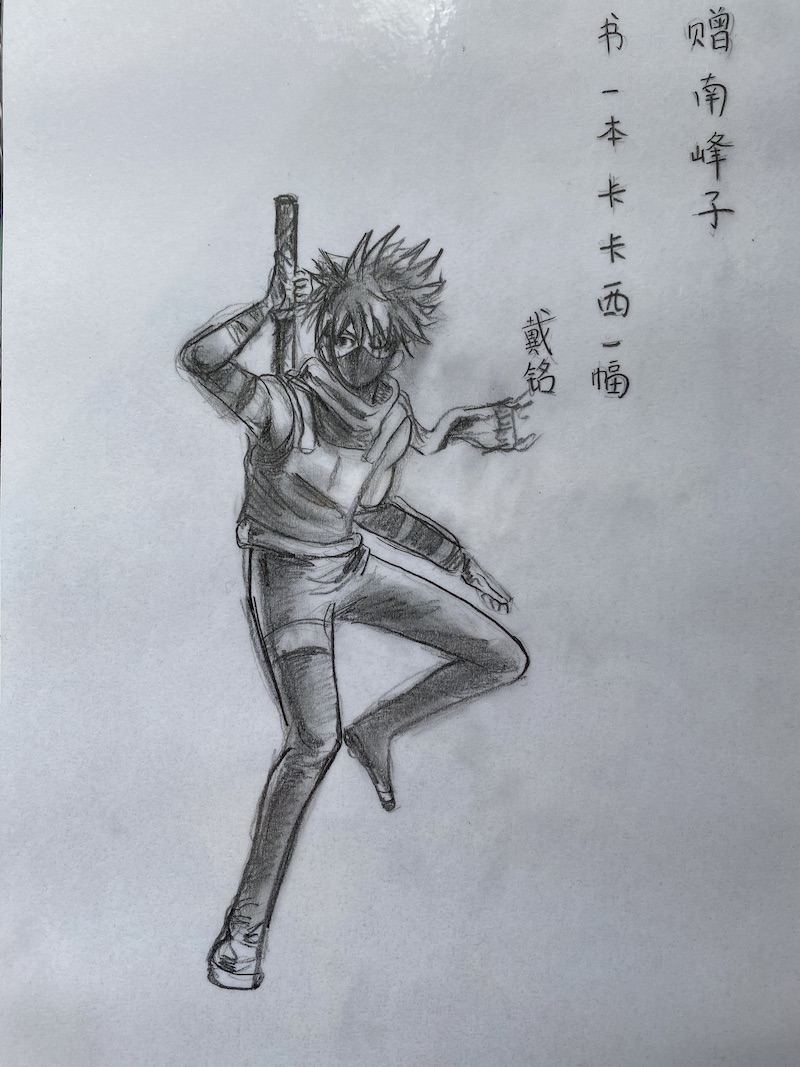 赠南峰子
书一本卡卡西一幅
戴铭